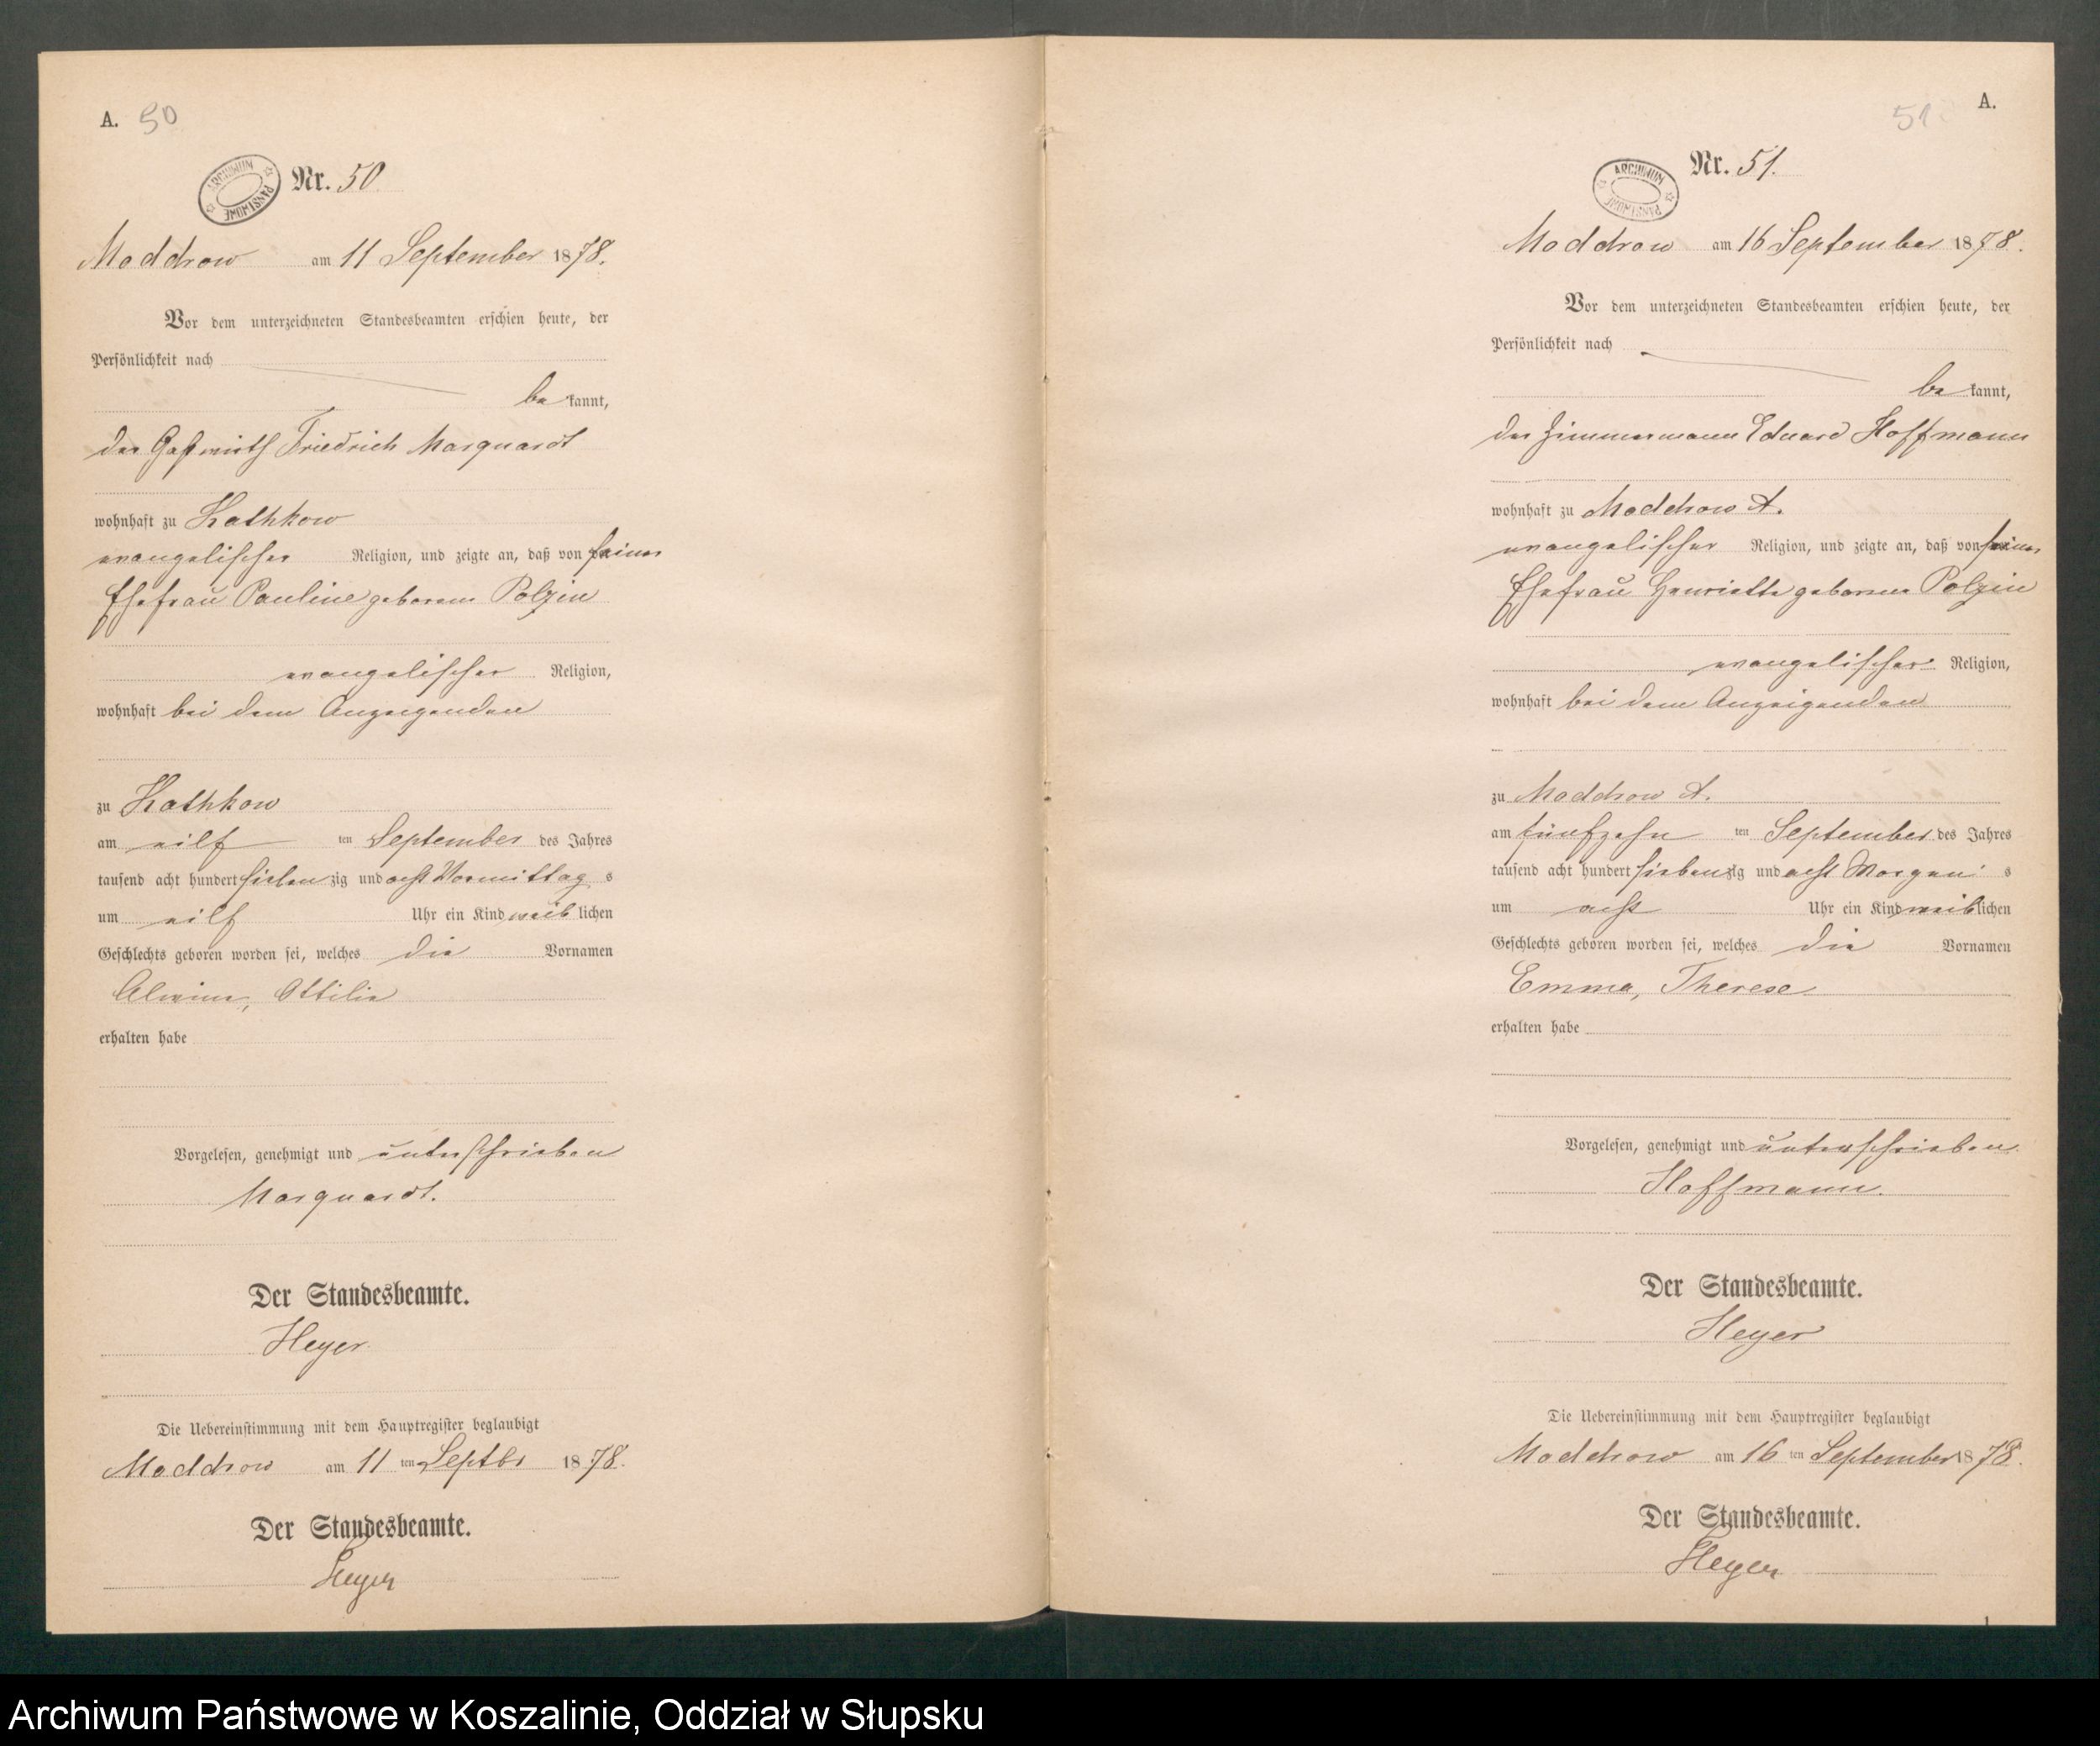 A. 50
ARCHIWUM PAŃSTWOWE
Nr. 50.
Moddrow am 11 September 1878.
Vor dem unterzeichneten Standesbeamten erschien heute, der
Persönlichkeit nach
be kannt,
der Gastwirth Friedrich Marquardt
wohnhaft zu Kathkow
evangelischer Religion, und zeigte an, daß von seiner
Ehefrau Pauline geborene Polzin
evangelischer Religion,
wohnhaft bei dem Anzeigenden
zu Kathkow
am eilf ten September des Jahres
tausend acht hundert sieben zig und acht Vormittag s
um eilf Uhr ein Kind weib lichen
Geschlechts geboren worden sei, welches die Vornamen
Alwine, Ottilie
erhalten habe
Vorgelesen, genehmigt und unterschrieben
Marquardt.
Der Standesbeamte.
Heyer.
Die Uebereinstimmung mit dem Hauptregister beglaubigt
Moddrow am 11 ten Septbr 1878.
Der Standesbeamte.
Heyer
51. A.
ARCHIWUM PAŃSTWOWE
Nr. 51.
Moddrow am 16 September 1878.
Vor dem unterzeichneten Standesbeamten erschien heute, der
Persönlichkeit nach
be kannt,
der Zimmermann Eduard Hoffmann
wohnhaft zu Moddrow A.
evangelischer Religion, und zeigte an, daß von seiner
Ehefrau Henriette geborene Polzin
evangelischer Religion,
wohnhaft bei dem Anzeigenden
zu Moddrow A.
am fünfzehn ten September des Jahres
tausend acht hundert siebenzig und acht Morgen s
um acht Uhr ein Kind weiblichen
Geschlechts geboren worden sei, welches die Vornamen
Emma, Therese
erhalten habe
Vorgelesen, genehmigt und unterschrieben
Hoffmann.
Der Standesbeamte.
Heyer
Die Uebereinstimmung mit dem Hauptregister beglaubigt
Moddrow am 16 ten September 1878.
Der Standesbeamte.
Heyer
Archiwum Państwowe w Koszalinie, Oddział w Słupsku